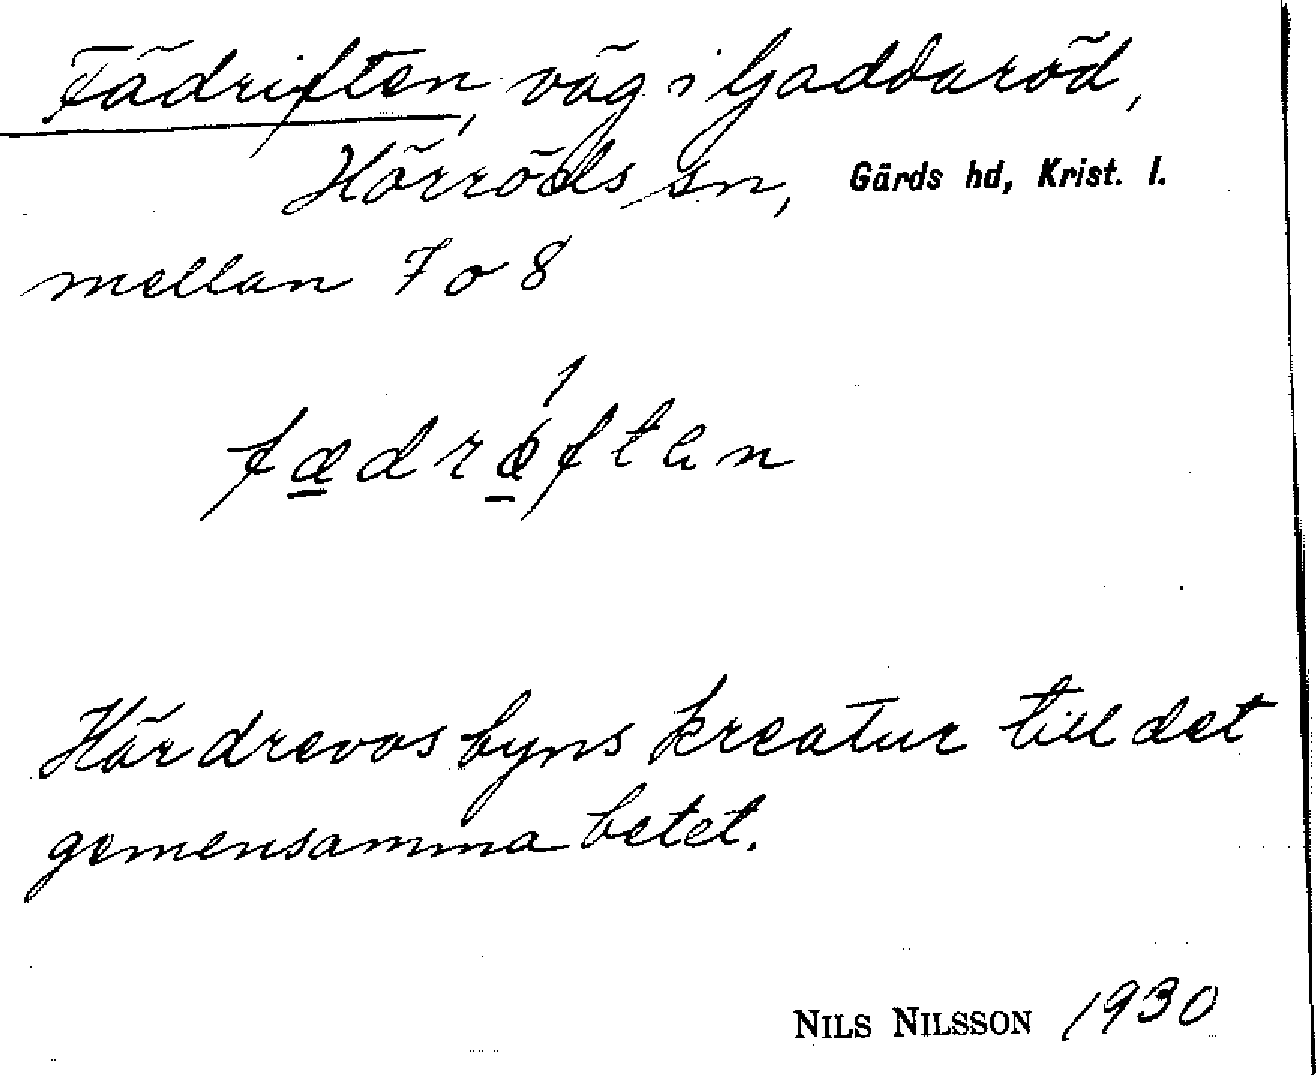 Fädriften, väg i Gaddaröd,
Hörröds sn, Gärds hd, Krist. l.
mellan 7 o 8
fædræften
Här drevos byns kreatur till det
gemensamma betet.
NILS NILSSON 1930